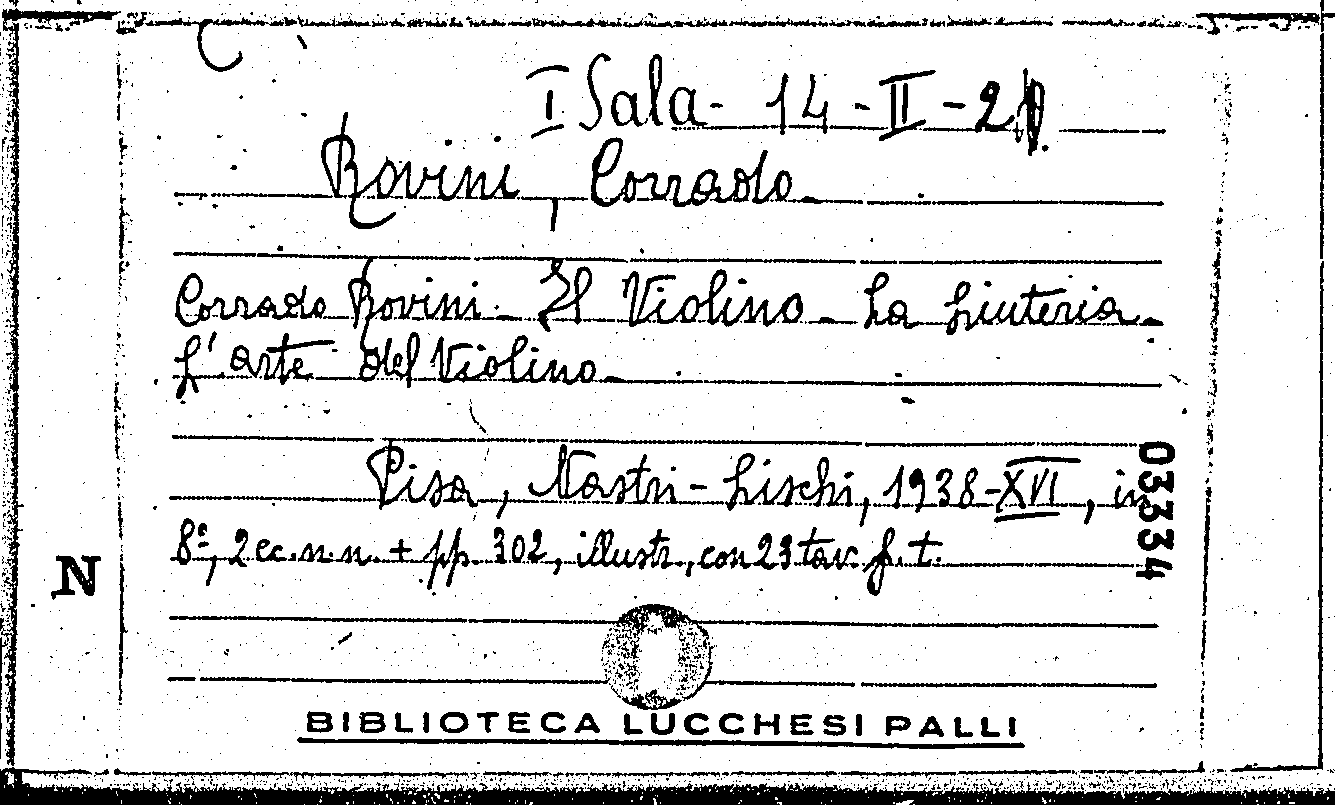 I Sala - 14 - II - 2
Rovini, Corrado
Corrado Rovini - Il Violino - La Liuteria -
L'arte del Violino
Pisa, Nastri-Lischi, 1938-XVI, in
8º, 2 cc.n.n. + pp. 302, illustr., con 23 tav. f. t.
03334
N
BIBLIOTECA LUCCHESI PALLI